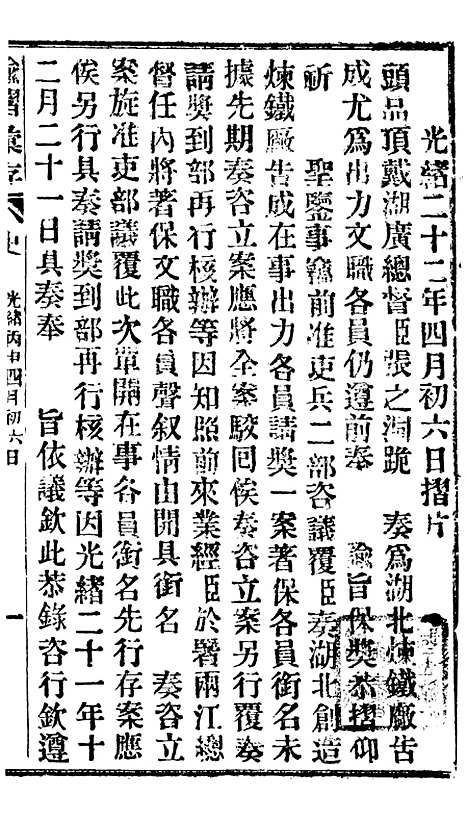 光緒二十二年四月初六日摺片
頭品頂戴湖廣總督臣張之洞跪　奏爲湖北煉鐵廠告
成尤爲出力文職各員仍遵前奉　諭旨保獎恭摺仰
祈　聖鑒事竊前准吏兵二部咨議覆臣奏湖北創造
煉鐵廠告成在事出力各員請獎一案著保各員銜名未
據先期奏咨立案應將全案駁回俟奏咨立案另行覆奏
請獎到部再行核辦等因知照前來業經臣於署兩江總
督任內將著保文職各員聲叙情由開具銜名　奏咨立
案旋准吏部議覆此次單開在事各員銜名先行存案應
俟另行具奏請獎到部再行核辦等因光緒二十一年十
二月二十一日具奏奉　旨依議欽此恭錄咨行欽遵
諭摺彙存　光緒丙申四月初六日　一